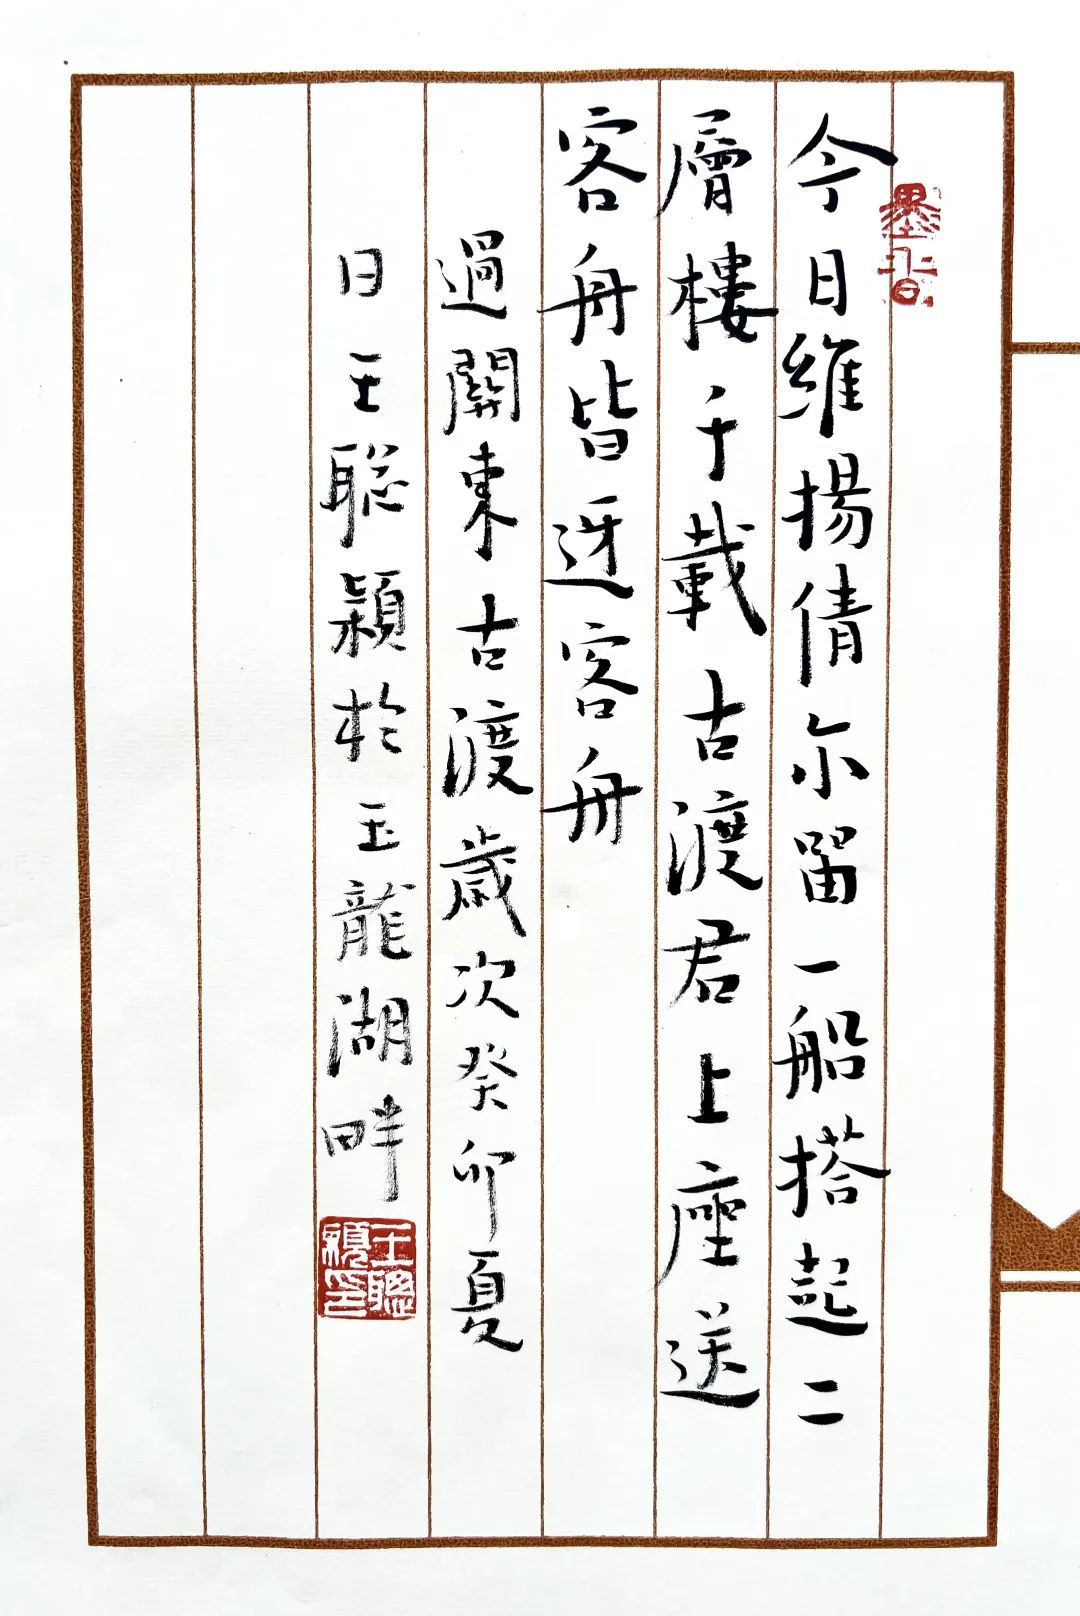 今日維揚倩尔留一船搭起二
層樓千載古渡君上座送
客舟皆迓客舟
過關東古渡歲次癸卯夏
日王聡穎於玉龍湖畔
王聰穎印